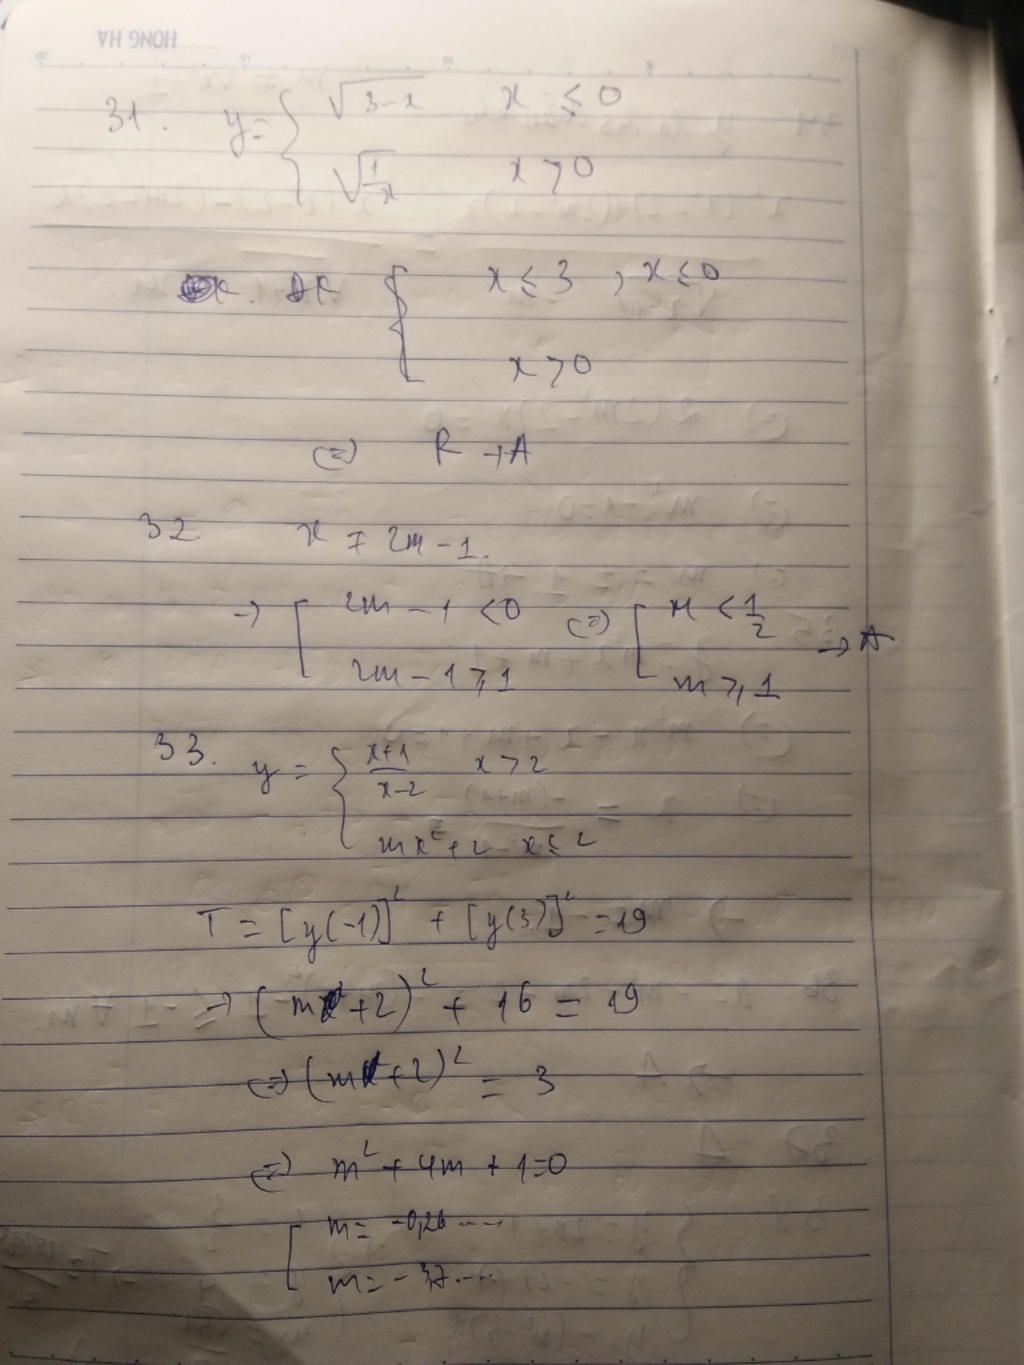 HONG HA
31. y = { √(3-x) x ≤ 0
√(1/x) x > 0
ĐK { x ≤ 3 , x ≤ 0
x > 0
(=) R → A
32 x ≠ 2m - 1.
→ [ 2m - 1 < 0 (=) [ m < 1/2
2m - 1 ≥ 1 m ≥ 1 → A
33. y = { (x+1)/(x-2) x > 2
mx² + 2 x ≤ 2
T = [y(-1)]² + [y(3)]² = 19
→ (m + 2)² + 16 = 19
(=) (m + 2)² = 3
(=) m² + 4m + 1 = 0
[ m = -0,26....
m = -3,7....